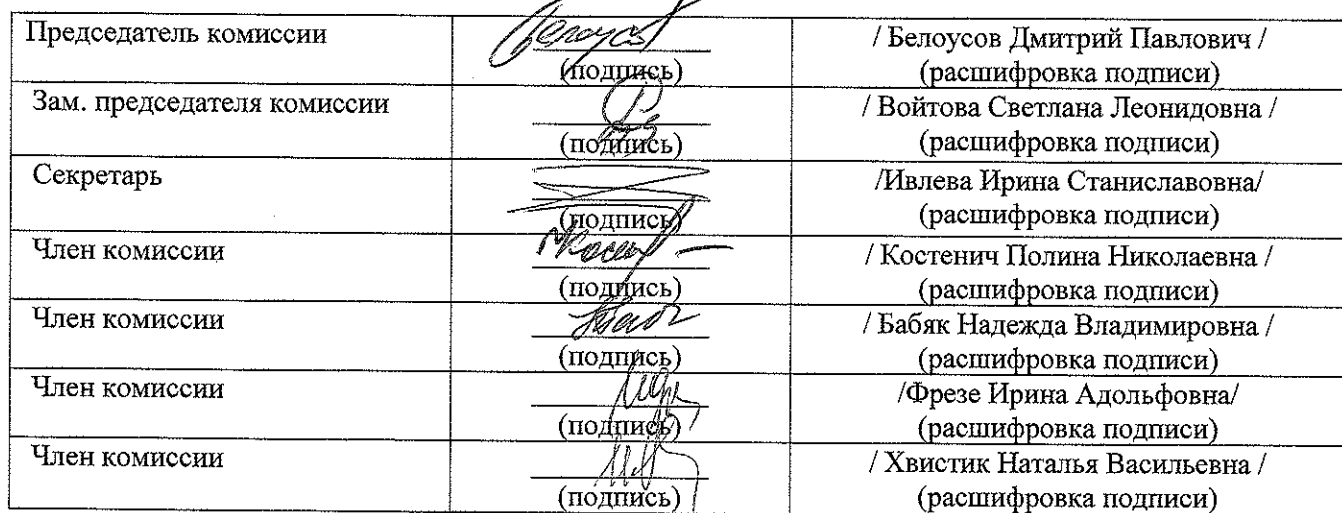 Председатель комиссии
(подпись)
/ Белоусов Дмитрий Павлович /
(расшифровка подписи)
Зам. председателя комиссии
(подпись)
/ Войтова Светлана Леонидовна /
(расшифровка подписи)
Секретарь
(подпись)
/Ивлева Ирина Станиславовна/
(расшифровка подписи)
Член комиссии
(подпись)
/ Костенич Полина Николаевна /
(расшифровка подписи)
Член комиссии
(подпись)
/ Бабяк Надежда Владимировна /
(расшифровка подписи)
Член комиссии
(подпись)
/Фрезе Ирина Адольфовна/
(расшифровка подписи)
Член комиссии
(подпись)
/ Хвистик Наталья Васильевна /
(расшифровка подписи)